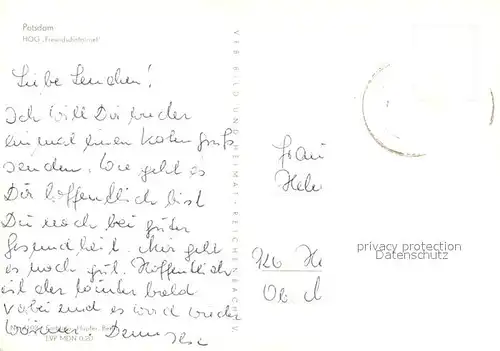 Potsdam
HOG „Freundschaftsinsel"
Liebe Lenchen!
Ich will Dir wieder
einmal einen Karten gruß
senden. Wie geht es
Dir hoffentlich bist
Du noch bei guter
Gesundheit. Mir geht
es noch gut. Hoffentlich
ist der Winter bald
vorbei und es wird wieder
wärmer.
EVP MDN 0,20
VEB BILD UND HEIMAT · REICHENBACH V
Frau
Hele
privacy protection
Datenschutz